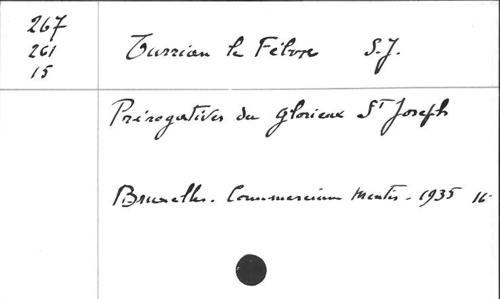 267
261
15
Turrien le Fèbvre S.J.
Prérogatives du glorieux St Joseph
Bruxelles. Commercium Mentis - 1935 16